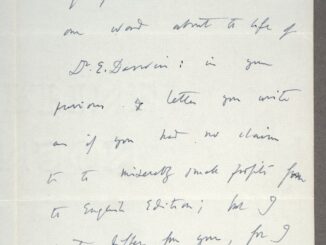 one word about the life of
Dr. E. Darwin: in your
previous letter you write
as if you had no claim
to the miserably small profits from
the English Edition; but I
better for you, for I